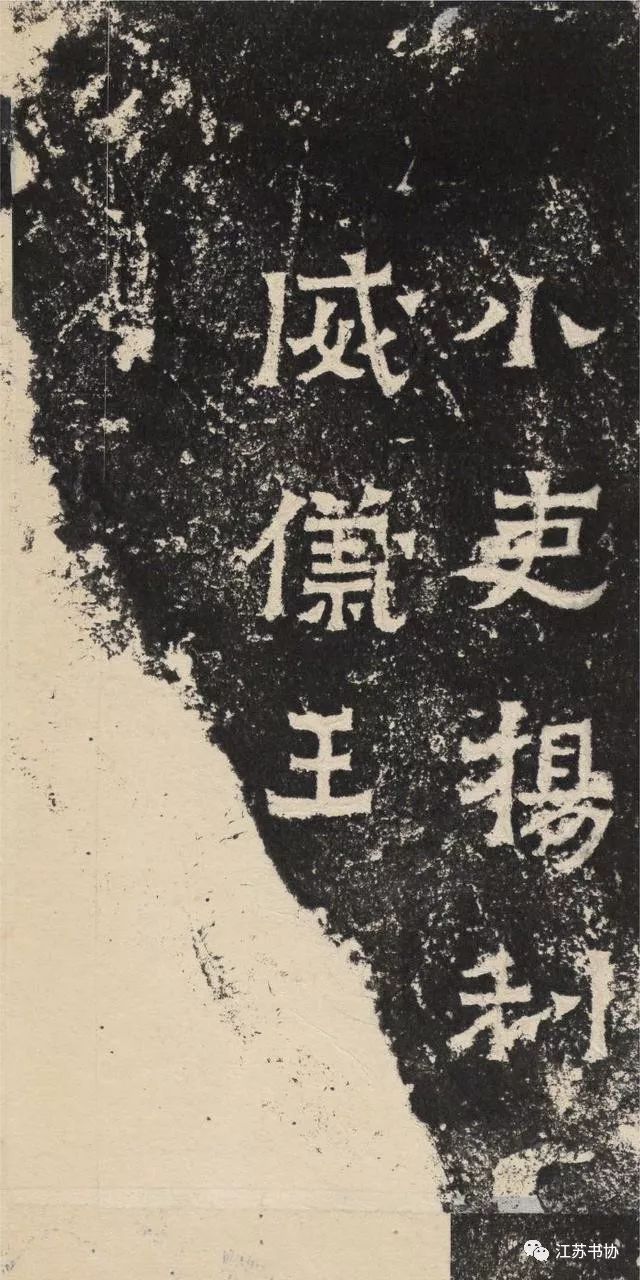 小吏楊利
威儀王
江苏书协